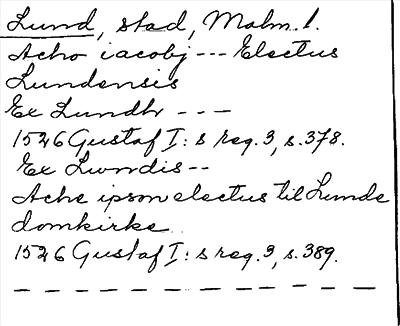 Lund, stad, Malm. l.
Acho iacobj --- Electus
Lundensis
Ex Lundh ---
1526 Gustaf I: s reg. 3, s. 378.
Ex Lwndis --
Ache ipson electus til Lunde
domkirke
1526 Gustaf I: s reg. 3, s. 389.